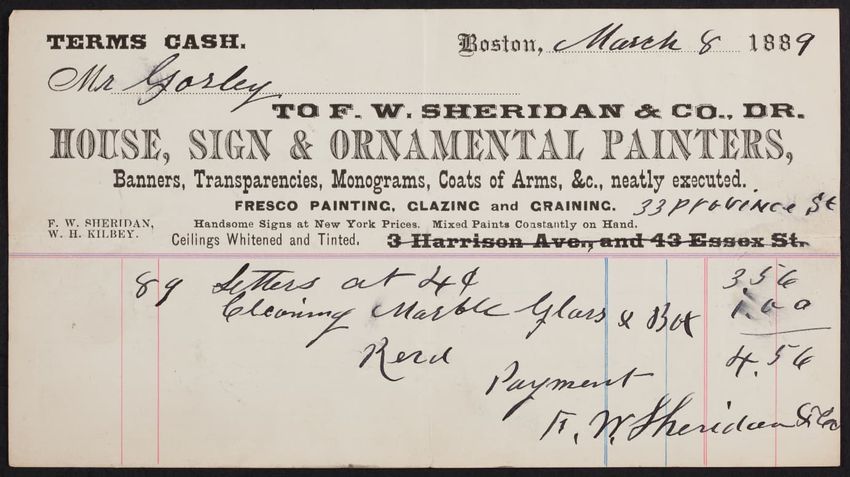 TERMS CASH.
Boston, March 8 1889
Mr Gorley
TO F. W. SHERIDAN & CO., DR.
HOUSE, SIGN & ORNAMENTAL PAINTERS,
Banners, Transparencies, Monograms, Coats of Arms, &c., neatly executed.
FRESCO PAINTING, GLAZING and GRAINING. 33 Province St
F. W. SHERIDAN, Handsome Signs at New York Prices. Mixed Paints Constantly on Hand.
W. H. KILBEY. Ceilings Whitened and Tinted. 3 Harrison Ave., and 43 Essex St.
89 Letters at 4¢ 3.56
Cleaning Marble Glass & Box 1.00
Recd 4.56
Payment
F. W. Sheridan & Co